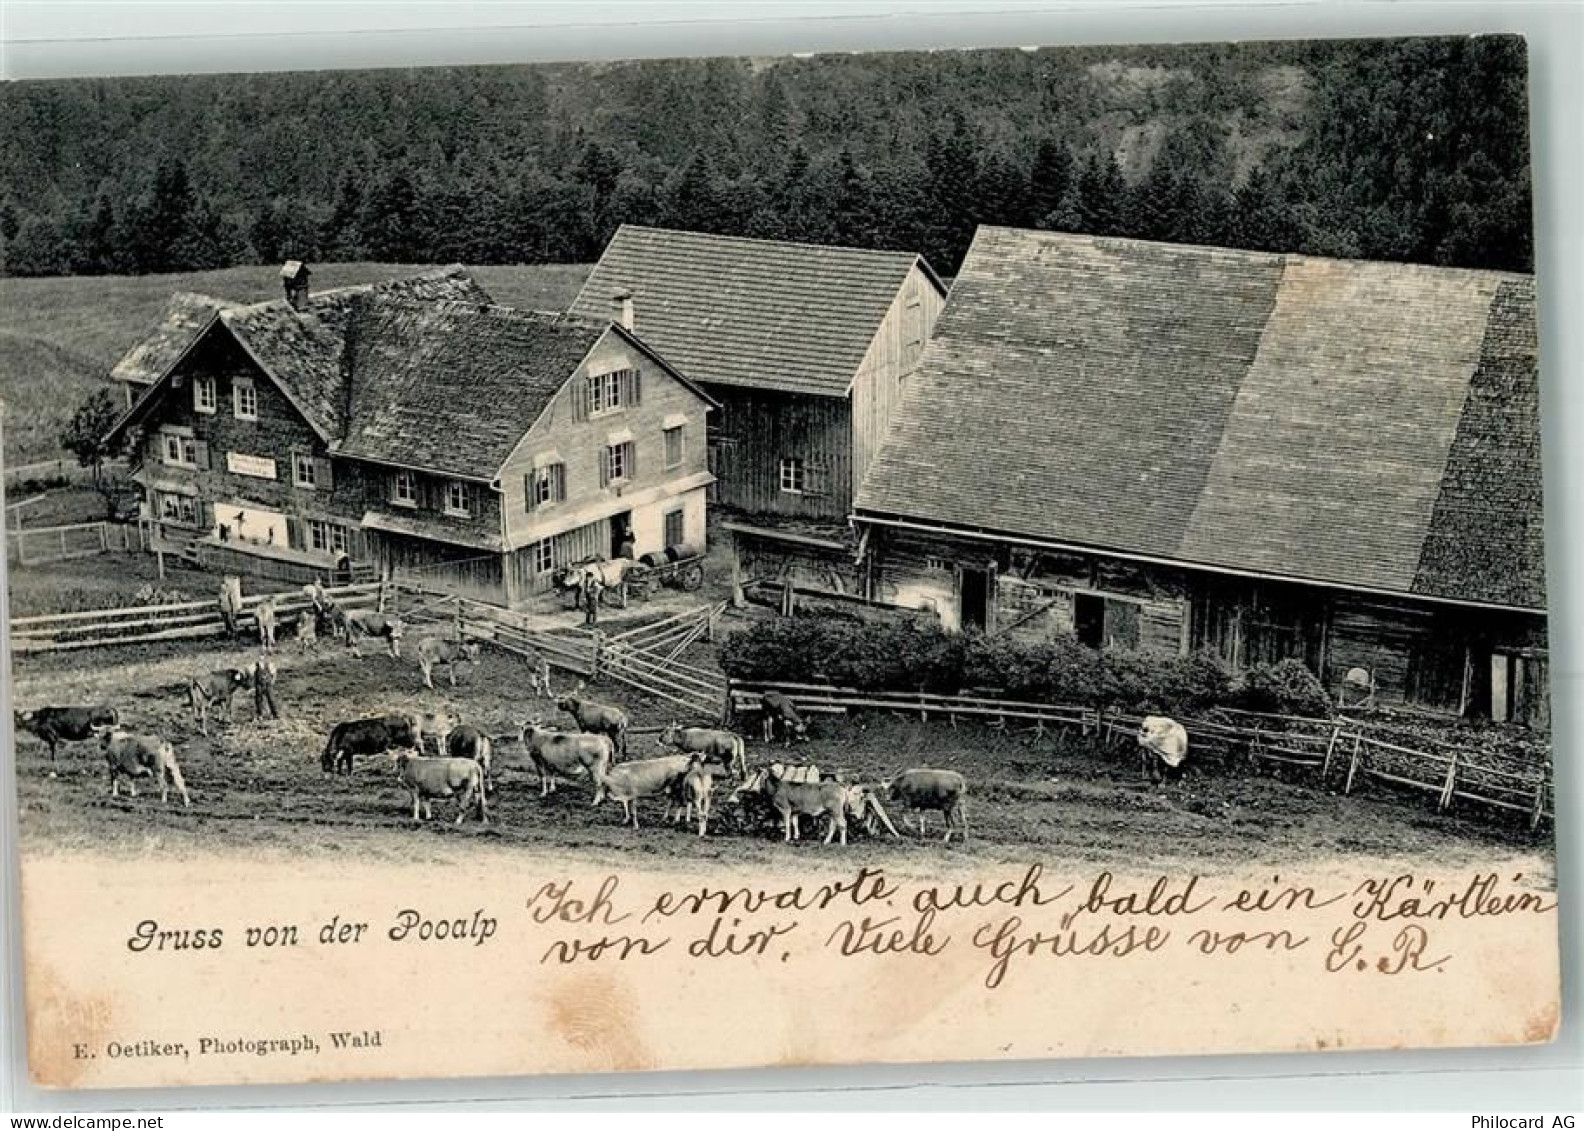 Gruss von der Pooalp
Ich erwarte auch bald ein Kärtlein
von dir. Viele Grüsse von G. R.
E. Oetiker, Photograph, Wald
Philocard AG